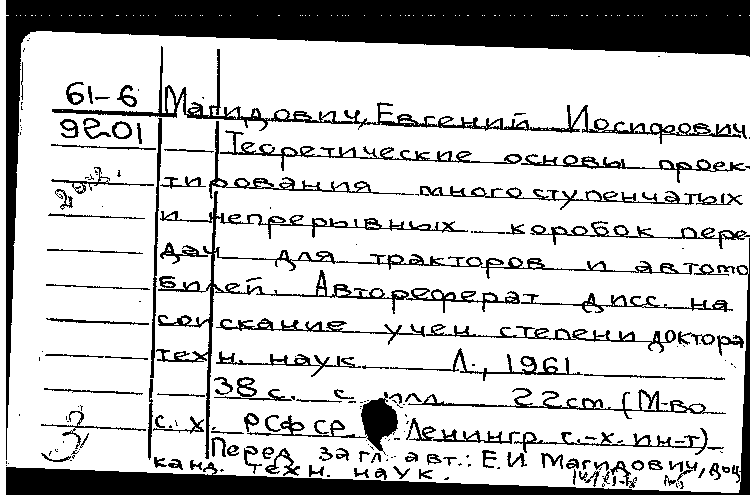 61-6 Магидович, Евгений Иосифович
9201 Теоретические основы проек-
2 экз.
тирования многоступенчатых
и непрерывных коробок пере
дач для тракторов и автомо
билей. Автореферат дисс. на
соискание учен. степени доктора
техн. наук. Л., 1961.
38 с. с илл. 22cm. (М-во
с. х. РСФСР. Ленингр. с.-х. ин-т)
3
Перед загл. авт.: Е.И. Магидович, доц
канд. техн. наук.